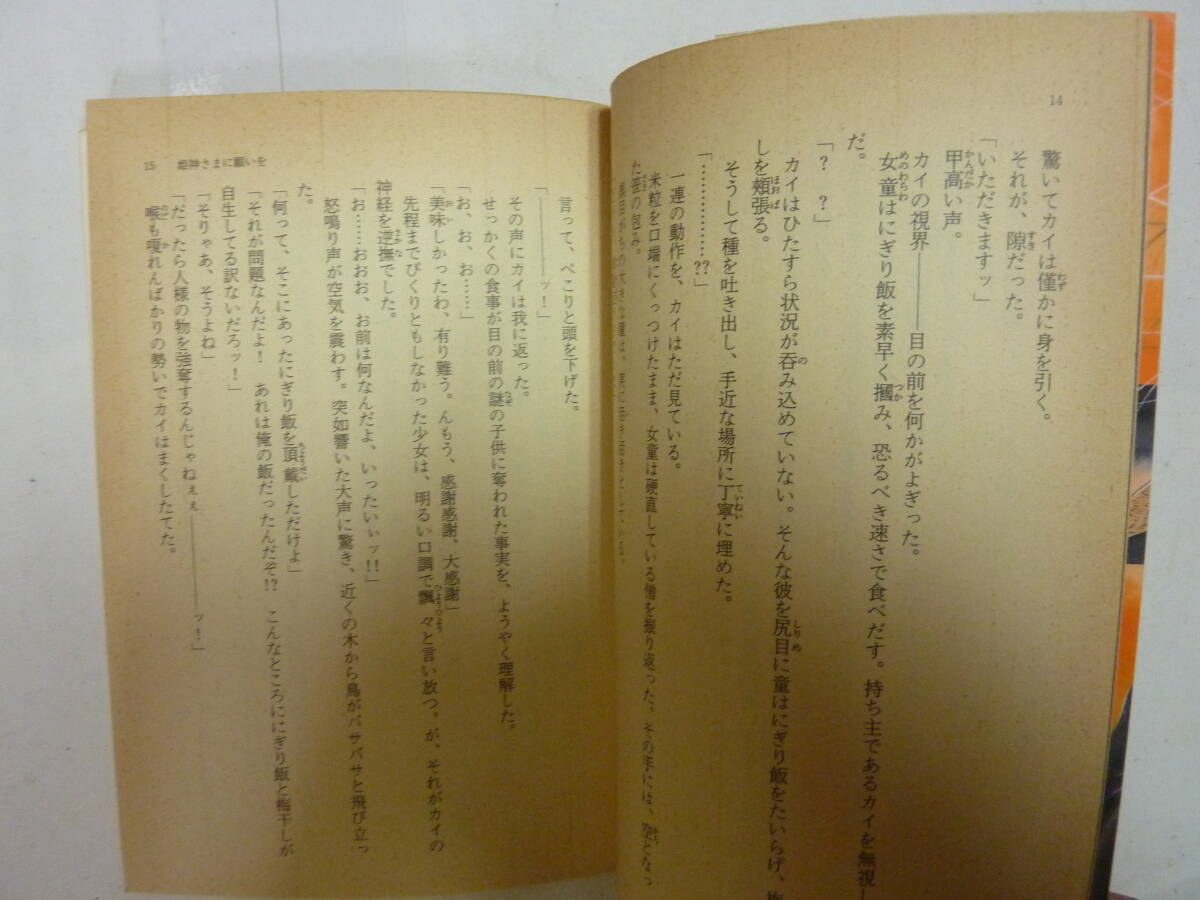 14
驚いてカイは僅かに身を引く。
それが、隙だった。
「いただきますッ」
甲高い声。
カイの視界――目の前を何かがよぎった。
女童はにぎり飯を素早く摑み、恐るべき速さで食べだす。持ち主であるカイを無視し
だ。
「？　？」
カイはひたすら状況が呑み込めていない。そんな彼を尻目に童はにぎり飯をたいらげ、
しを頰張る。
そうして種を吐き出し、手近な場所に丁寧に埋めた。
「…………??」
一連の動作を、カイはただ見ている。
米粒を口端にくっつけたまま、女童は硬直している僧を振り返った。その手には、空となっ
た笹の包み。
15　姫神さまに願いを
言って、ぺこりと頭を下げた。
「――――ッ！」
その声にカイは我に返った。
せっかくの食事が目の前の謎の子供に奪われた事実を、ようやく理解した。
「お、お、お……」
「美味しかったわ、有り難う。んもう、感謝感謝、大感謝」
先程までびくりともしなかった少女は、明るい口調で飄々と言い放つ。が、それがカイの
神経を逆撫でした。
「お……おおお、お前は何なんだよ、いったいぃッ!!」
怒鳴り声が空気を震わす。突如響いた大声に驚き、近くの木から鳥がバサバサと飛び立っ
た。
「何って、そこにあったにぎり飯を頂戴しただけよ」
「それが問題なんだよ！　あれは俺の飯だったんだぞ!?　こんなところににぎり飯と梅干しが
自生してる訳ないだろッ！」
「そりゃあ、そうよね」
「だったら人様の物を強奪するんじゃねぇぇ――――ッ！」
喉も嗄れんばかりの勢いでカイはまくしたてた。